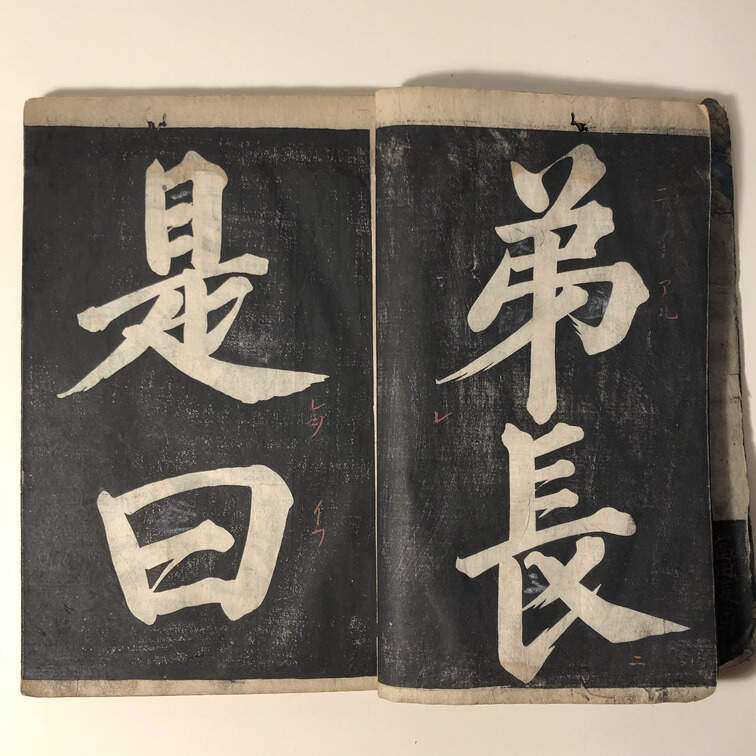 弟長
アル
レ
二
是曰
レヲ
イフ